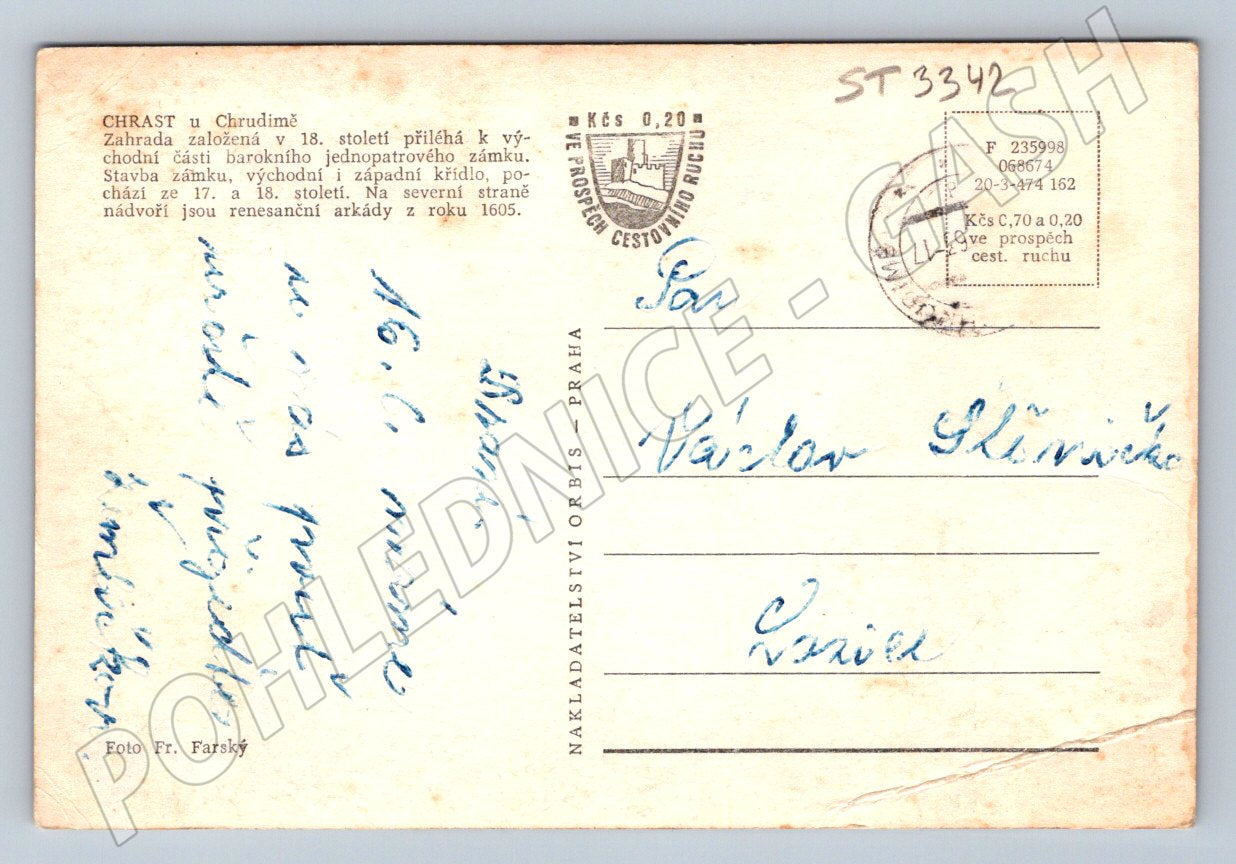 ST 3342
CHRAST u Chrudimě
Zahrada založená v 18. století přiléhá k vý-
chodní části barokního jednopatrového zámku.
Stavba zámku, východní i západní křídlo, po-
chází ze 17. a 18. století. Na severní straně
nádvoří jsou renesanční arkády z roku 1605.
Kčs 0,20
VE PROSPĚCH CESTOVNÍHO RUCHU
F 235998
068674
20-3-474 162
Kčs 0,70 a 0,20
ve prospěch
cest. ruchu
Pan
Václav
16.
u nás pouť
přijedte
NAKLADATELSTVÍ ORBIS – PRAHA
Foto Fr. Farský
POHLEDNICE - GASH